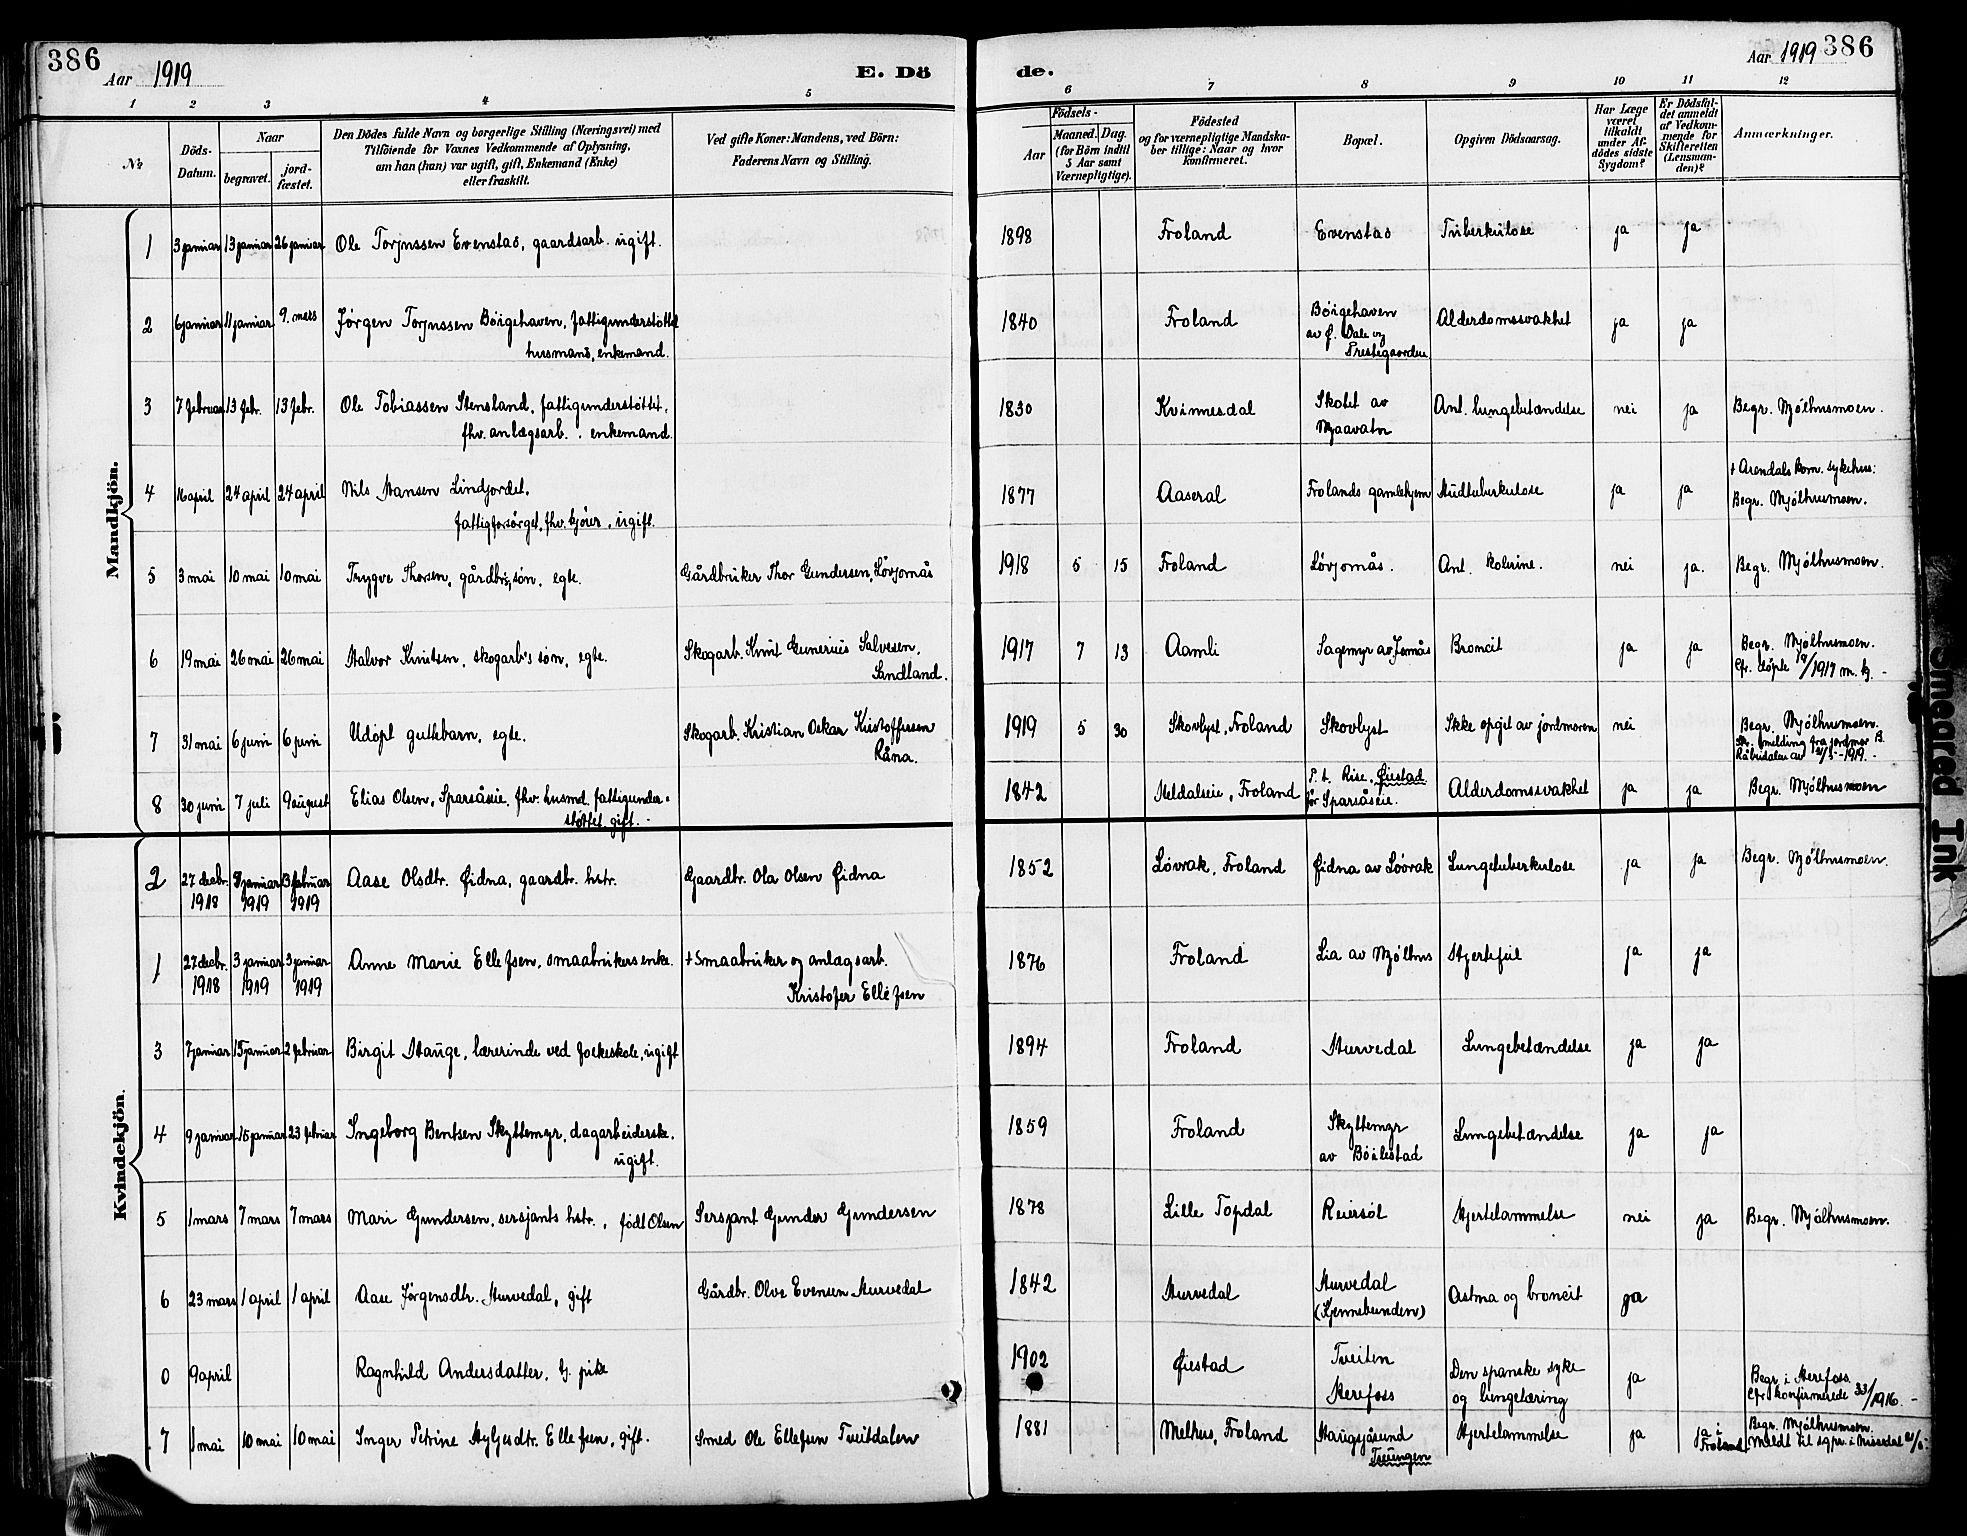 386
Aar 1919
E. Dö
de.
Aar 1919 386
1 2 3 4 5 6 7 8 9 10 11 12
№
Döds-
Datum.
Naar
begravet.
jord-
fæstet.
Den Dödes fulde Navn og borgerlige Stilling (Næringsvei) med
Tilföiende for Voxnes Vedkommende af Oplysning,
om han (hun) var ugift, gift, Enkemand (Enke)
eller fraskilt.
Ved gifte Koner: Mandens, ved Börn:
Faderens Navn og Stilling.
Födsels-
Aar
Maaned. Dag.
(for Börn indtil
5 Aar samt
Værnepligtige).
Födested
og for værnepligtige Mandska-
ber tillige: Naar og hvor
konfirmeret.
Bopæl.
Opgiven Dödsaarsag.
Har Læge
været
tilkaldt
under Af-
dödes sidste
Sygdom?
Er Dödsfal-
det anmeldt
af Vedkom-
mende for
Skifteretten
(Lensman-
den)?
Anmærkninger.
Mandkjön.
1 3 januar 13 januar 26 januar Ole Torjussen Evenstad, gaardsarb. ugift. 1898 Froland Evenstad Tuberkulose ja ja
2 6 januar 11 januar 9. mars Jørgen Torjussen Böigehaven, fattigunderstöttet
husmand, enkemand.
1840 Froland Böigehaven
av ø. Dale og
Prestegaarden
Alderdomssvakhet ja ja
3 7 februar 13 febr. 13 febr. Ole Tobiassen Stensland, fattigunderstöttet,
fhv. anlægsarb., enkemand.
1830 Kvinnesdal Skotet av
Mjaavatn
Ant. lungebetændelse nei ja Begr. Mjölhusmoen.
4 16 april 24 april 24 april Nils Hansen Lindjordet,
fattigforsörget, fhv. tjöner, ugift.
1877 Aaseral Frolands gamlehjem Hudtuberkulose ja ja † Arendals kom. sykehus:
Begr. Mjölhusmoen.
5 3 mai 10 mai 10 mai Trygve Thorsen, gårdbr.s søn, egte. Gårdbruker Thor Gundersen, Lövjomås 1918 5 15 Froland Lövjomås. Ant. kolerine. nei ja. Begr. Mjölhusmoen.
6 19 mai 26 mai 26 mai Halvor Knutsen, skogarb's søn, egte. Skogarb. Knut Gunerius Salvesen,
Sandland.
1917 7 13 Aamli Sagemyr av Jomås Broncit ja ja Begr. Mjölhusmoen.
Cfr. döpte /1917 m. kj. -
7 31 mai 6 juni 6 juni Udöpt guttebarn, egte. Skogarb. Kristian Oskar Kristoffersen
Råna.
1919 5 30 Skovlyst, Froland Skovlyst Ikke opgit av jordmoren nei Begr. Mjölhusmoen.
melding fra jordmor B.
Råbudalen av 31/5 - 1919. -
8 30 juni 7 juli 9 august Elias Olsen, Sparsåseie, fhv. husmd. fattigunder-
stöttet, gift. -
1842 Heldalseie, Froland P. t. Rise, Øiestad
för Sparsåseie.
Alderdomssvakhet ja ja Begr. Mjölhusmoen
Kvindekjön.
2 27 decbr.
1918
januar
1919
3 februar
1919
Aase Olsdtr. Øidna, gaardbr. hstr. Gaardbr. Ola Olsen Øidna 1852 Lövrak, Froland Øidna av Löövrak Lungetuberkulose ja ja Begr. Mjölhusmoen.
1 27 decbr.
1918
3 januar
1919
3 januar
1919
Anne Marie Ellefsen, smaabrukers enke. † Smaabruker og anlagsarb.
Kristofer Ellefsen
1876 Froland Lia av Mjölhus Hjertefeil ja ja
3 7 januar 15 januar 2 februar Birgit Hauge, lærerinde ved folkeskole, ugift 1894 Froland Hurvedal Lungebetændelse ja ja
4 9 januar 15 januar 23 februar Ingeborg Bentsen Skyttemyr, dagarbeiderske.
ugift.
1859 Froland Skyttemyr
av Böilestad
Lungebetændelse ja ja
5 1 mars 7 mars 7 mars Mari Gundersen, sersjants hstr., født Olsen Sersjant Gunder Gundersen 1878 Lille Topdal Reiersöl Hjertelammelse nei ja Begr. Mjölhusmoen.
6 23 mars 1 april 1 april Aase Jørgensdtr. Hurvedal, gift Gårdbr. Olve Evensen Hurvedal 1842 Hurvedal Hurvedal
(Kjennebunden)
Astma og broncit ja
0 9 april Ragnhild Andersdatter, tj. pike 1902 Øiestad Tveiten
Herefoss
Den spanske syke
og lungetæring
ja Begr. i Herefoss.
Cfr. konfirmerede 33/1916. -
7 1 mai 10 mai 10 mai Inger Petrine Nyljusdtr. Ellefsen, gift. Smed Ole Ellefsen Tveitdalen 1881 Melhus, Froland Haugsjåsund
Treungen
Hjertelammelse ja ja i
Froland
Begr. Mjölhusmoen.
Meldt til sgpr. i Nissedal
Smeared Ink